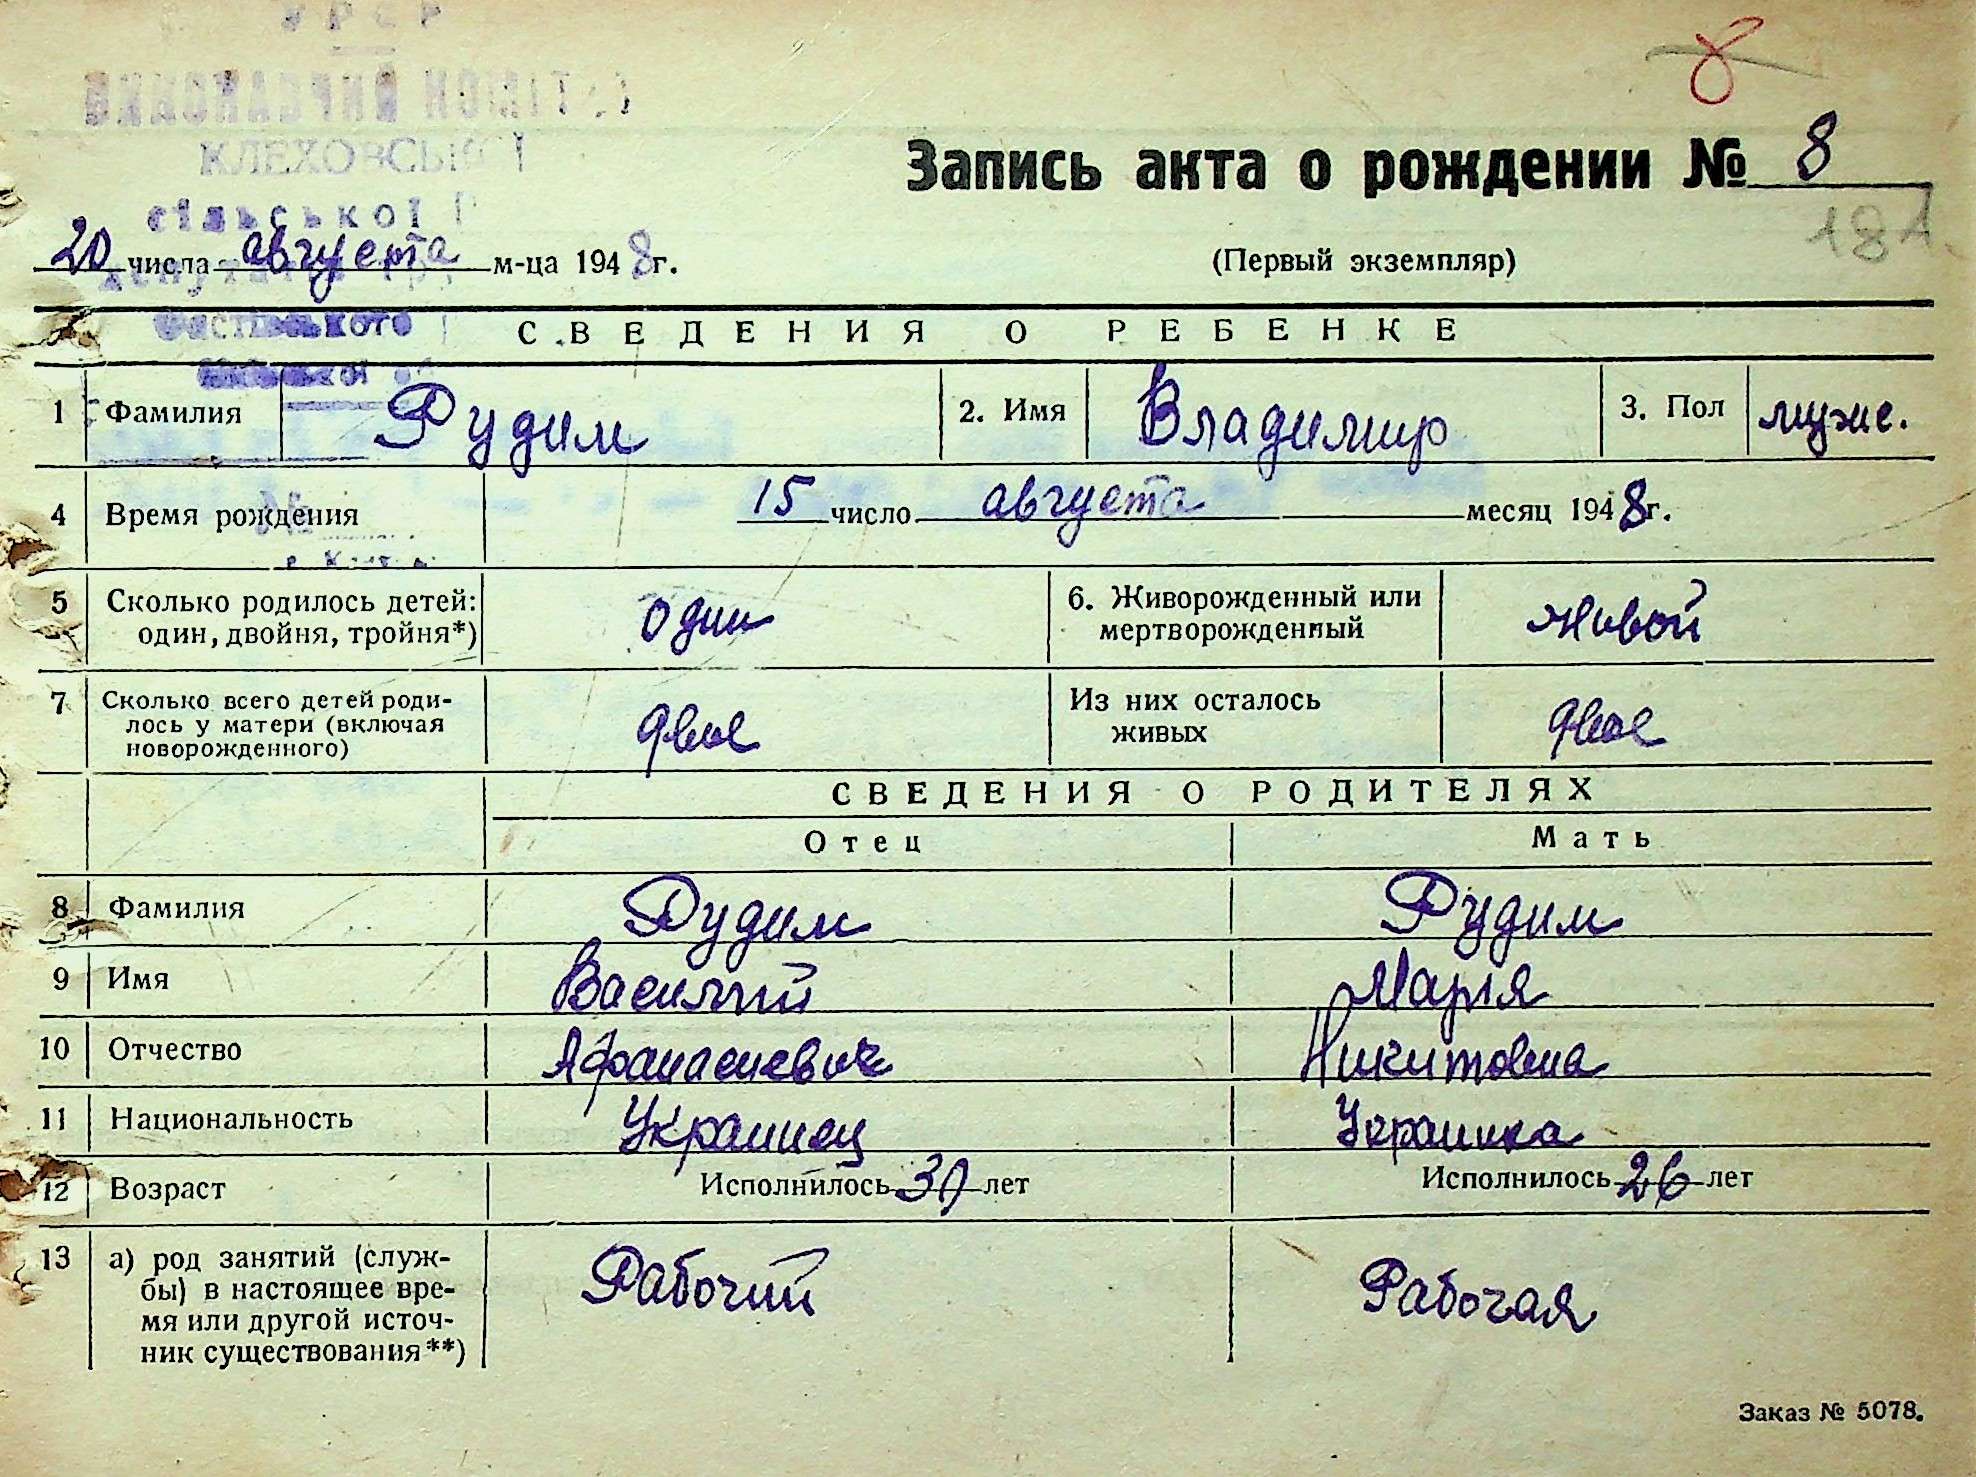 УРСР
8
КЛЕХОВСЬКОЇ
Запись акта о рождении № 8
сільської
181
20 числа августа м-ца 1948 г.
(Первый экземпляр)
СВЕДЕНИЯ О РЕБЕНКЕ
1 Фамилия Рудим 2. Имя Владимир 3. Пол мужс.
4 Время рождения 15 число августа месяц 1948 г.
5 Сколько родилось детей: один, двойня, тройня*) один 6. Живорожденный или мертворожденный живой
7 Сколько всего детей роди-
лось у матери (включая
новорожденного) двое Из них осталось живых двое
СВЕДЕНИЯ О РОДИТЕЛЯХ
Отец Мать
8 Фамилия Рудим Рудим
9 Имя Василий Мария
10 Отчество Афанасиевич Никитовна
11 Национальность Украинец Украинка
12 Возраст Исполнилось 30 лет Исполнилось 26 лет
13 а) род занятий (служ-
бы) в настоящее вре-
мя или другой источ-
ник существования**) Рабочий Рабочая
Заказ № 5078.